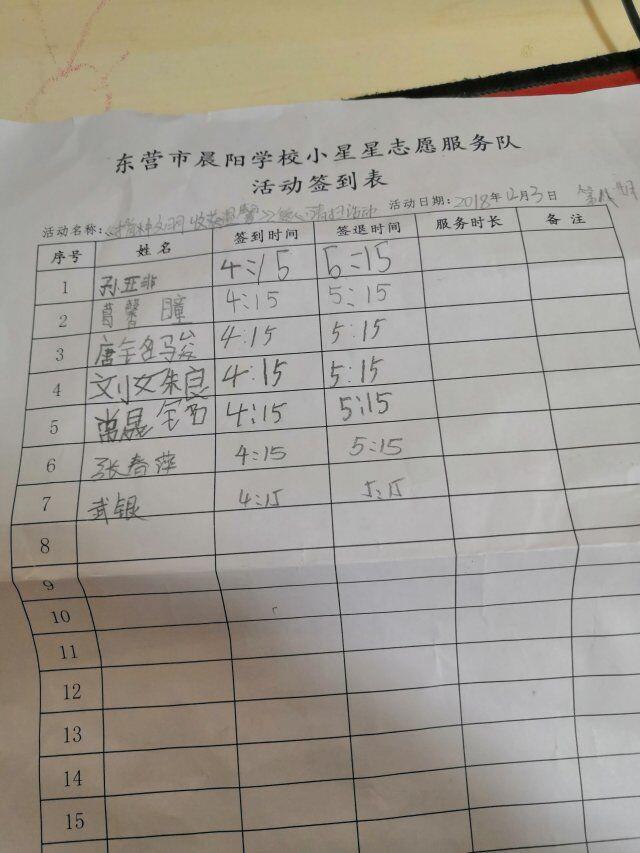 东营市晨阳学校小星星志愿服务队
活动签到表
活动名称: 活动日期: 2018年12月3日
序号 姓名 签到时间 签退时间 服务时长 备注
1 孙亚非 4:15 5:15
2 葛馨瞳 4:15 5:15
3 唐铭骏 4:15 5:15
4 刘文良 4:15 5:15
5 4:15 5:15
6 张春萍 4:15 5:15
7 武银 4:15 5:15
8
9
10
11
12
13
14
15